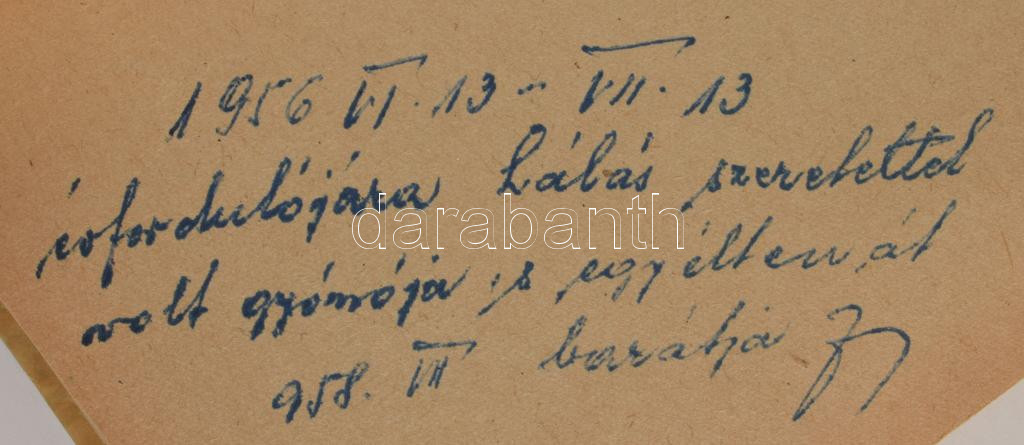 1956 VI. 13 - VII. 13
évfordulójára hálás szeretettel
volt gyónója s egy életen át
958. VII barátja
darabanth